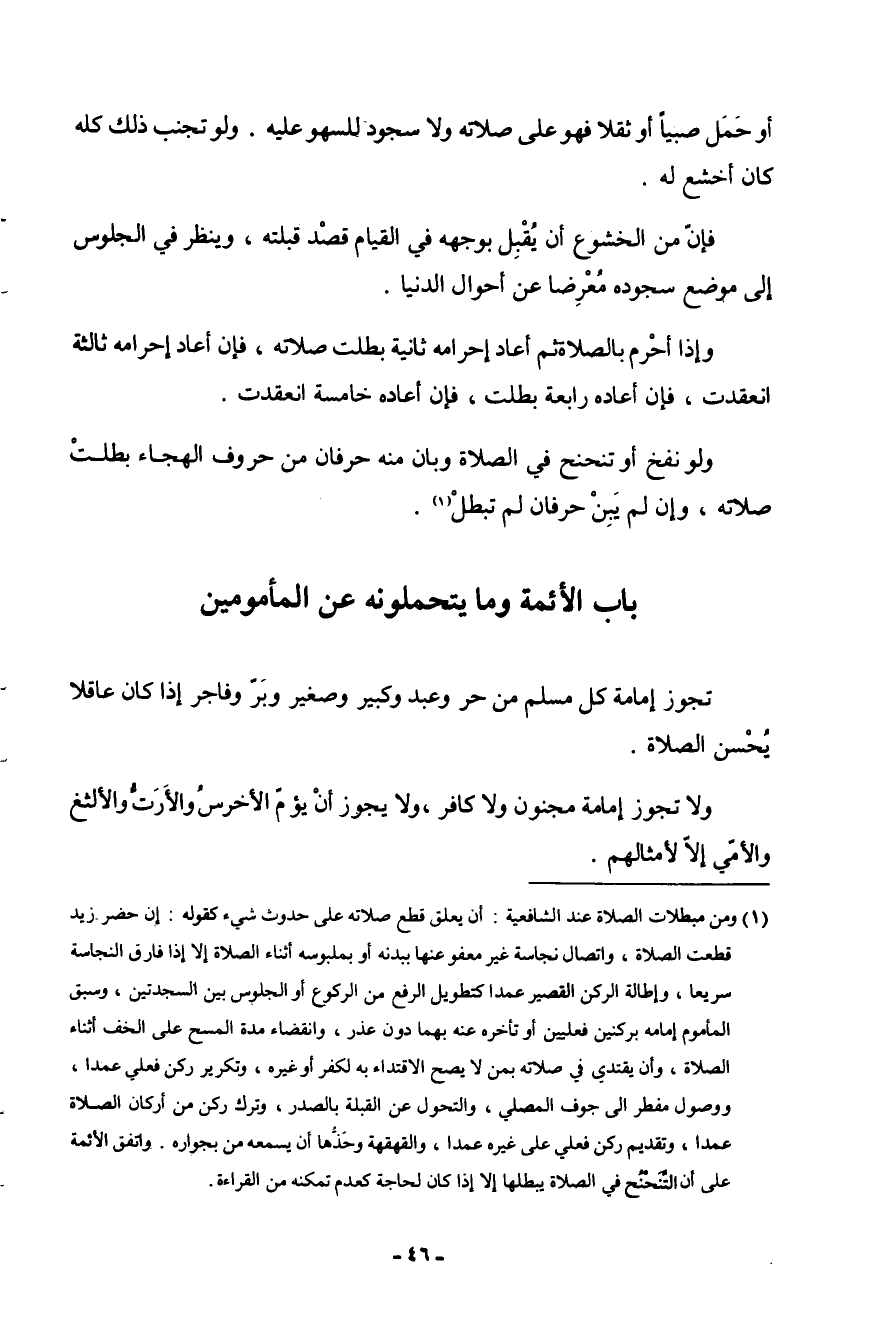 أو حَمَل صبياً أو ثقلا فهو على صلاته ولا سجود للسهو عليه . ولو تجنب ذلك كله
كان أخشع له .
فإنّ من الخشوع أن يُقْبِل بوجهه في القيام قصْد قبلته ، وينظر في الجلوس
إلى موضع سجوده مُعْرِضا عن أحوال الدنيا .
وإذا أحْرم بالصلاة ثم أعاد إحرامه ثانية بطلت صلاته ، فإن أعاد إحرامه ثالثة
انعقدت ، فإن أعاده رابعة بطلت ، فإن أعاده خامسة انعقدت .
ولو نفخ أو تنحنح في الصلاة وبان منه حرفان من حروف الهجاء بطلـتْ
صلاته ، وإن لم يَبِنْ حرفان لم تبطلْ(١) .
باب الأئمة وما يتحملونه عن المأمومين
تجوز إمامة كل مسلم من حر وعبد وكبير وصغير وبَرّ وفاجر إذا كان عاقلا
يُحْسن الصلاة .
ولا تجوز إمامة مجنون ولا كافر ،ولا يجوز أنْ يؤمّ الأخرسُ والأَرَتُّ والألثغ
والأمّي إلاّ لأمثالهم .
(١) ومن مبطلات الصلاة عند الشافعية : أن يعلق قطع صلاته على حدوث شيء كقوله : إن حضر زيد
قطعت الصلاة ، واتصال نجاسة غير معفو عنها ببدنه أو بملبوسه أثناء الصلاة إلا إذا فارق النجاسة
سريعا ، وإطالة الركن القصير عمدا كتطويل الرفع من الركوع أو الجلوس بين السجدتين ، وسبق
المأموم إمامه بركنين فعليين أو تأخره عنه بهما دون عذر ، وانقضاء مدة المسح على الخف أثناء
الصلاة ، وأن يقتدي في صلاته بمن لا يصح الاقتداء به لكفر أو غيره ، وتكرير ركن فعلي عمدا ،
ووصول مفطر الى جوف المصلي ، والتحول عن القبلة بالصدر ، وترك ركن من أركان الصـلاة
عمدا ، وتقديم ركن فعلي على غيره عمدا ، والقهقهة وحَدُّها أن يسمعه من بجواره . واتفق الأئمة
على أن التَّنَحْنُح في الصلاة يبطلها إلا إذا كان لحاجة كعدم تمكنه من القراءة .
- ٤٦ -